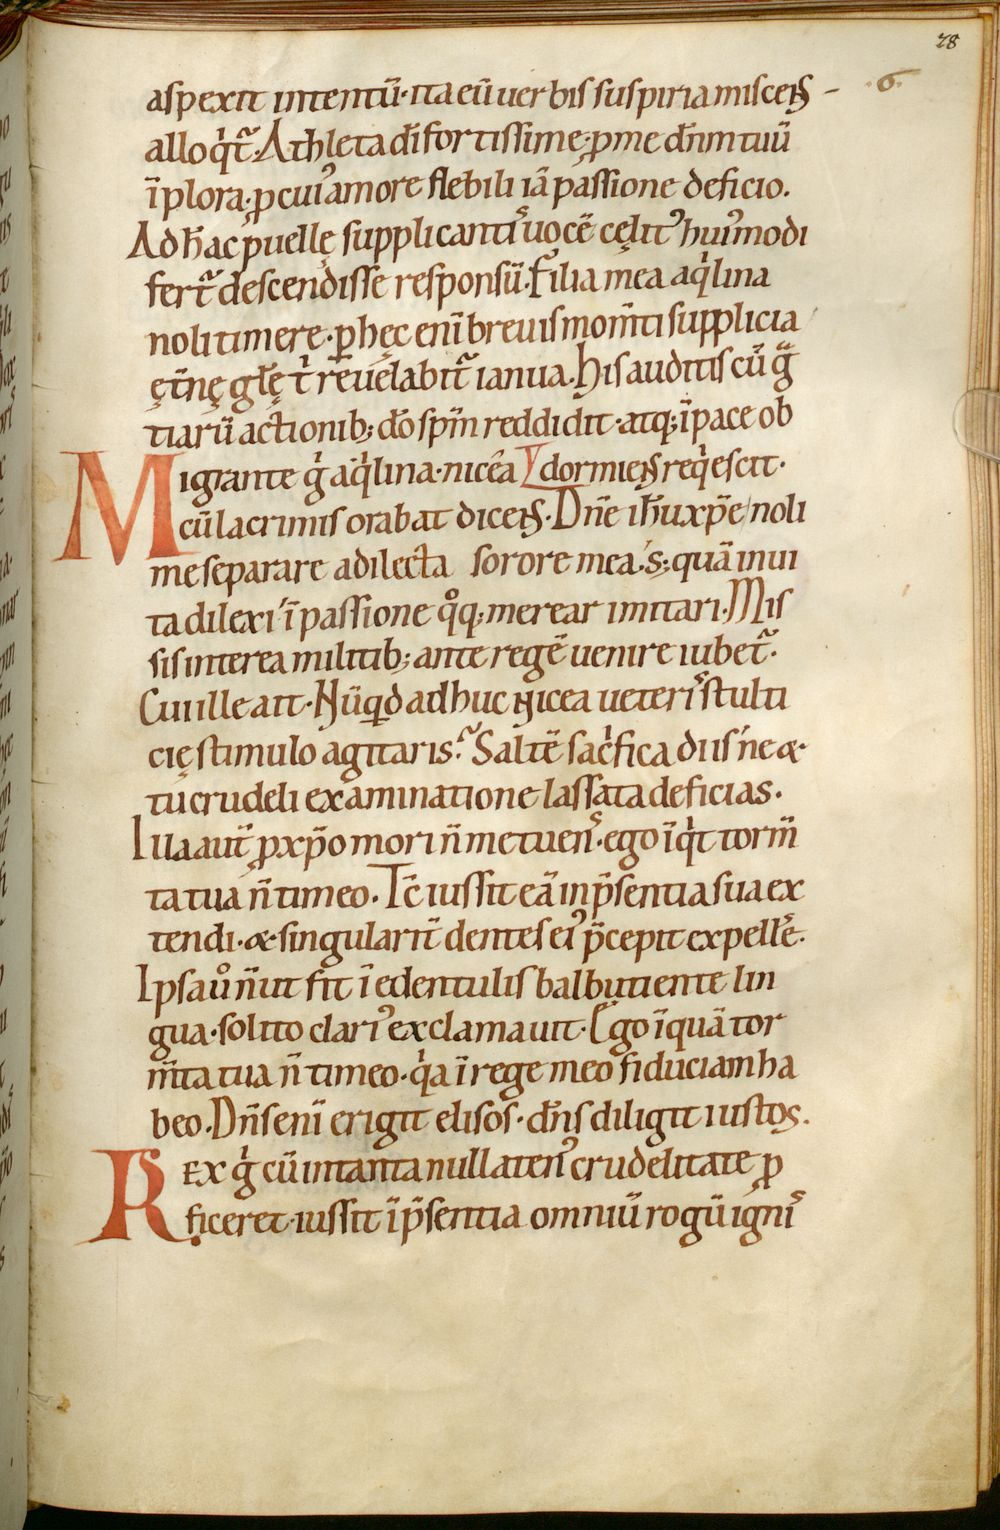 28
·6·
aspexit intentū·ita eū uerbis suspiria miscens –
alloq̍t᷑·Athleta dī fortissime·ꝑ me dn̄m tuū
īplora·ꝑ cui᾽ amore flebili iā passione deficio.
Ad h̄ac puellę supplicantis uocē cęlit᾽ hui᾽modi
fert᷑ descendisse responsū·Filia mea aq̍lina
noli timere·ꝑ hęc enī breuis mom̄ti supplicia
ęt̄nę głę t̍ reuelabit᷑ ianua·His auditis cū gᷓ
tiarū actionib; dō spm̄ reddidit·atq; ī pace ob
Migrante g̍ aq̍lina·nicēa dormiens req̍escit·
cū lacrimis orabat dicens·Dn̄e ih̄u xp̄e noli
me separare a dilecta sorore mea·s; quā in ui
ta dilexi ī passione q̊q; merear imitari·Mis
sis interea militib; ante regē uenire iubet᷑·
Cui ille ait·Nūqd adhuc nicea ueteris stulti
cię stimulo agitaris? Saltē sac̍fica diis ne &
tu crudeli examinatione lassata deficias·
Illa aut̄ ꝑ xp̄o mori n̄ metuens·ego īq̍t torm̄
ta tua n̄ timeo·Tc̄ iussit eā in p̄sentia sua ex
tendi·& singularit̄ dentes ei᾽ p̄cepit expellē·
Ipsa ů n̄ ut fit ī edentulis balbutiente lin
gua·solito clari᾽ exclamauit·Ego īquā tor
m̄ta tua n̄ timeo·q̍a ī rege meo fiduciam ha
beo·Dn̄s enī erigit elisos·dn̄s diligit iustos.
Rex g̍ cū in tanta nullaten᾽ crudelitate ꝓ
ficeret·iussit ī p̄sentia omniū rogū ignis